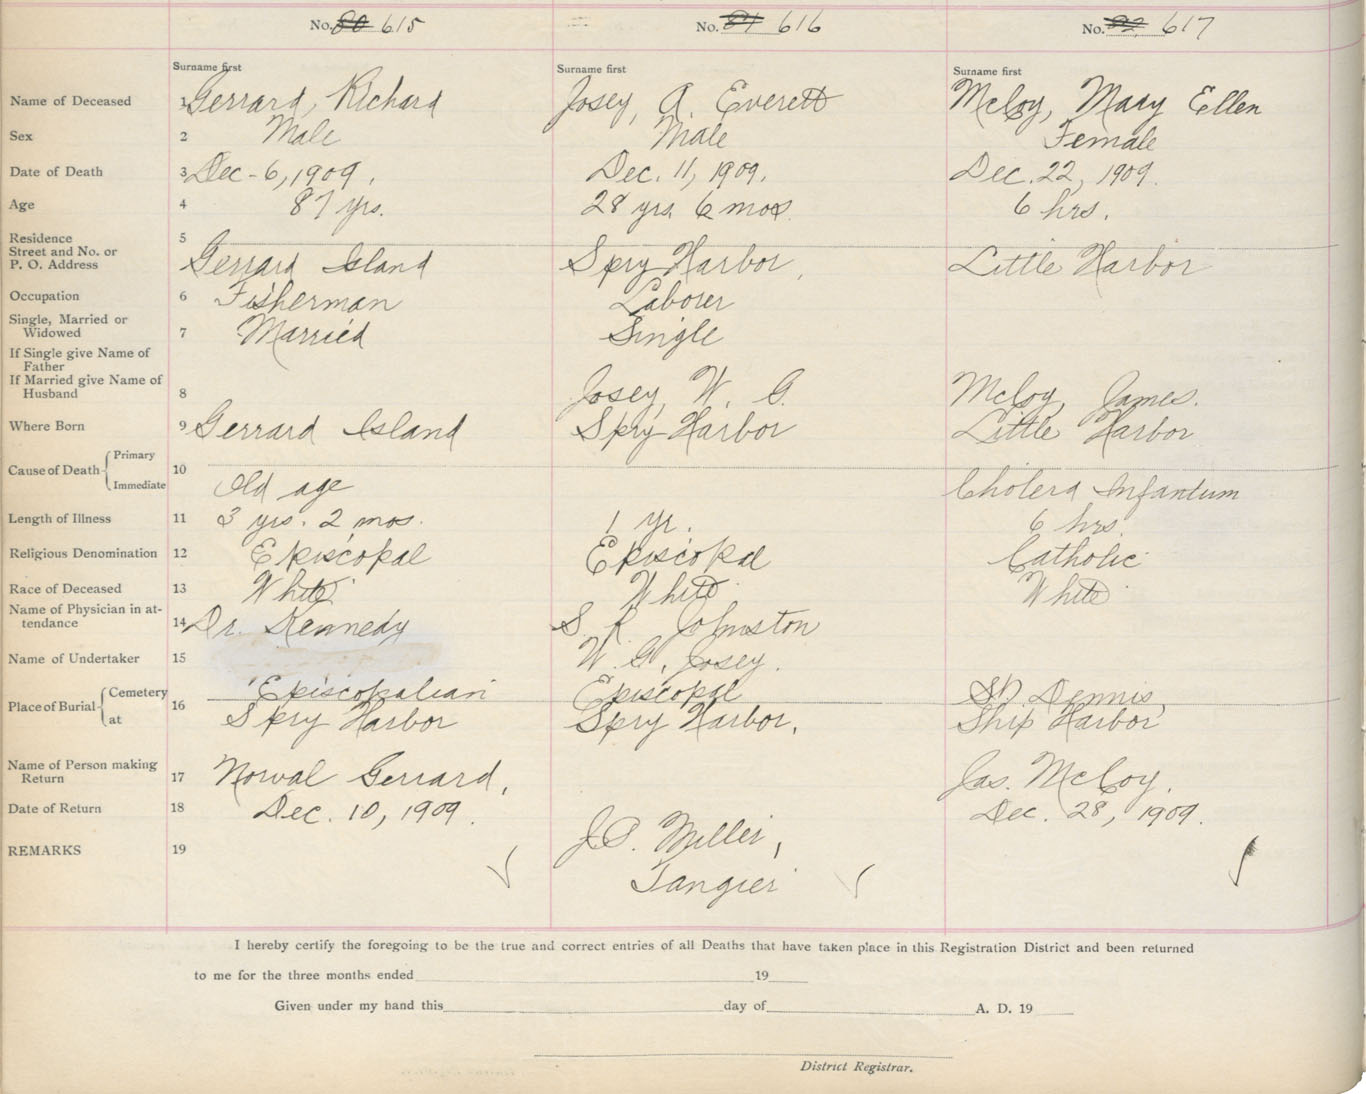 No. 80 615
No. 81 616
No. 82 617
Surname first
Surname first
Surname first
Name of Deceased 1 Gerrard, Richard Josey, A. Everett McCoy, Mary Ellen
Sex 2 Male Male Female
Date of Death 3 Dec-6, 1909. Dec. 11, 1909. Dec. 22, 1909.
Age 4 87 yrs. 28 yrs 6 mos. 6 hrs.
Residence 5
Street and No. or
P. O. Address Gerrard Island Spry Harbor, Little Harbor
Occupation 6 Fisherman Laborer
Single, Married or
Widowed 7 Married Single
If Single give Name of
Father
If Married give Name of
Husband 8 Josey, W. G. McCoy, James.
Where Born 9 Gerrard Island Spry Harbor Little Harbor
Cause of Death Primary 10
Immediate Old age Cholera Infantum
Length of Illness 11 3 yrs. 2 mos. 1 yr. 6 hrs.
Religious Denomination 12 Episcopal Episcopal Catholic
Race of Deceased 13 White White White
Name of Physician in at-
tendance 14 Dr. Kennedy S. R. Johnston
Name of Undertaker 15 W. G. Josey.
Place of Burial Cemetery 16 Episcopalian Episcopal St. Dennis,
at Spry Harbor Spry Harbor, Ship Harbor
Name of Person making
Return 17 Norval Gerrard, Jas. McCoy,
Date of Return 18 Dec. 10, 1909. Dec. 28, 1909.
REMARKS 19 J. P. Miller,
Tangier
I hereby certify the foregoing to be the true and correct entries of all Deaths that have taken place in this Registration District and been returned
to me for the three months ended 19
Given under my hand this day of A. D. 19
District Registrar.